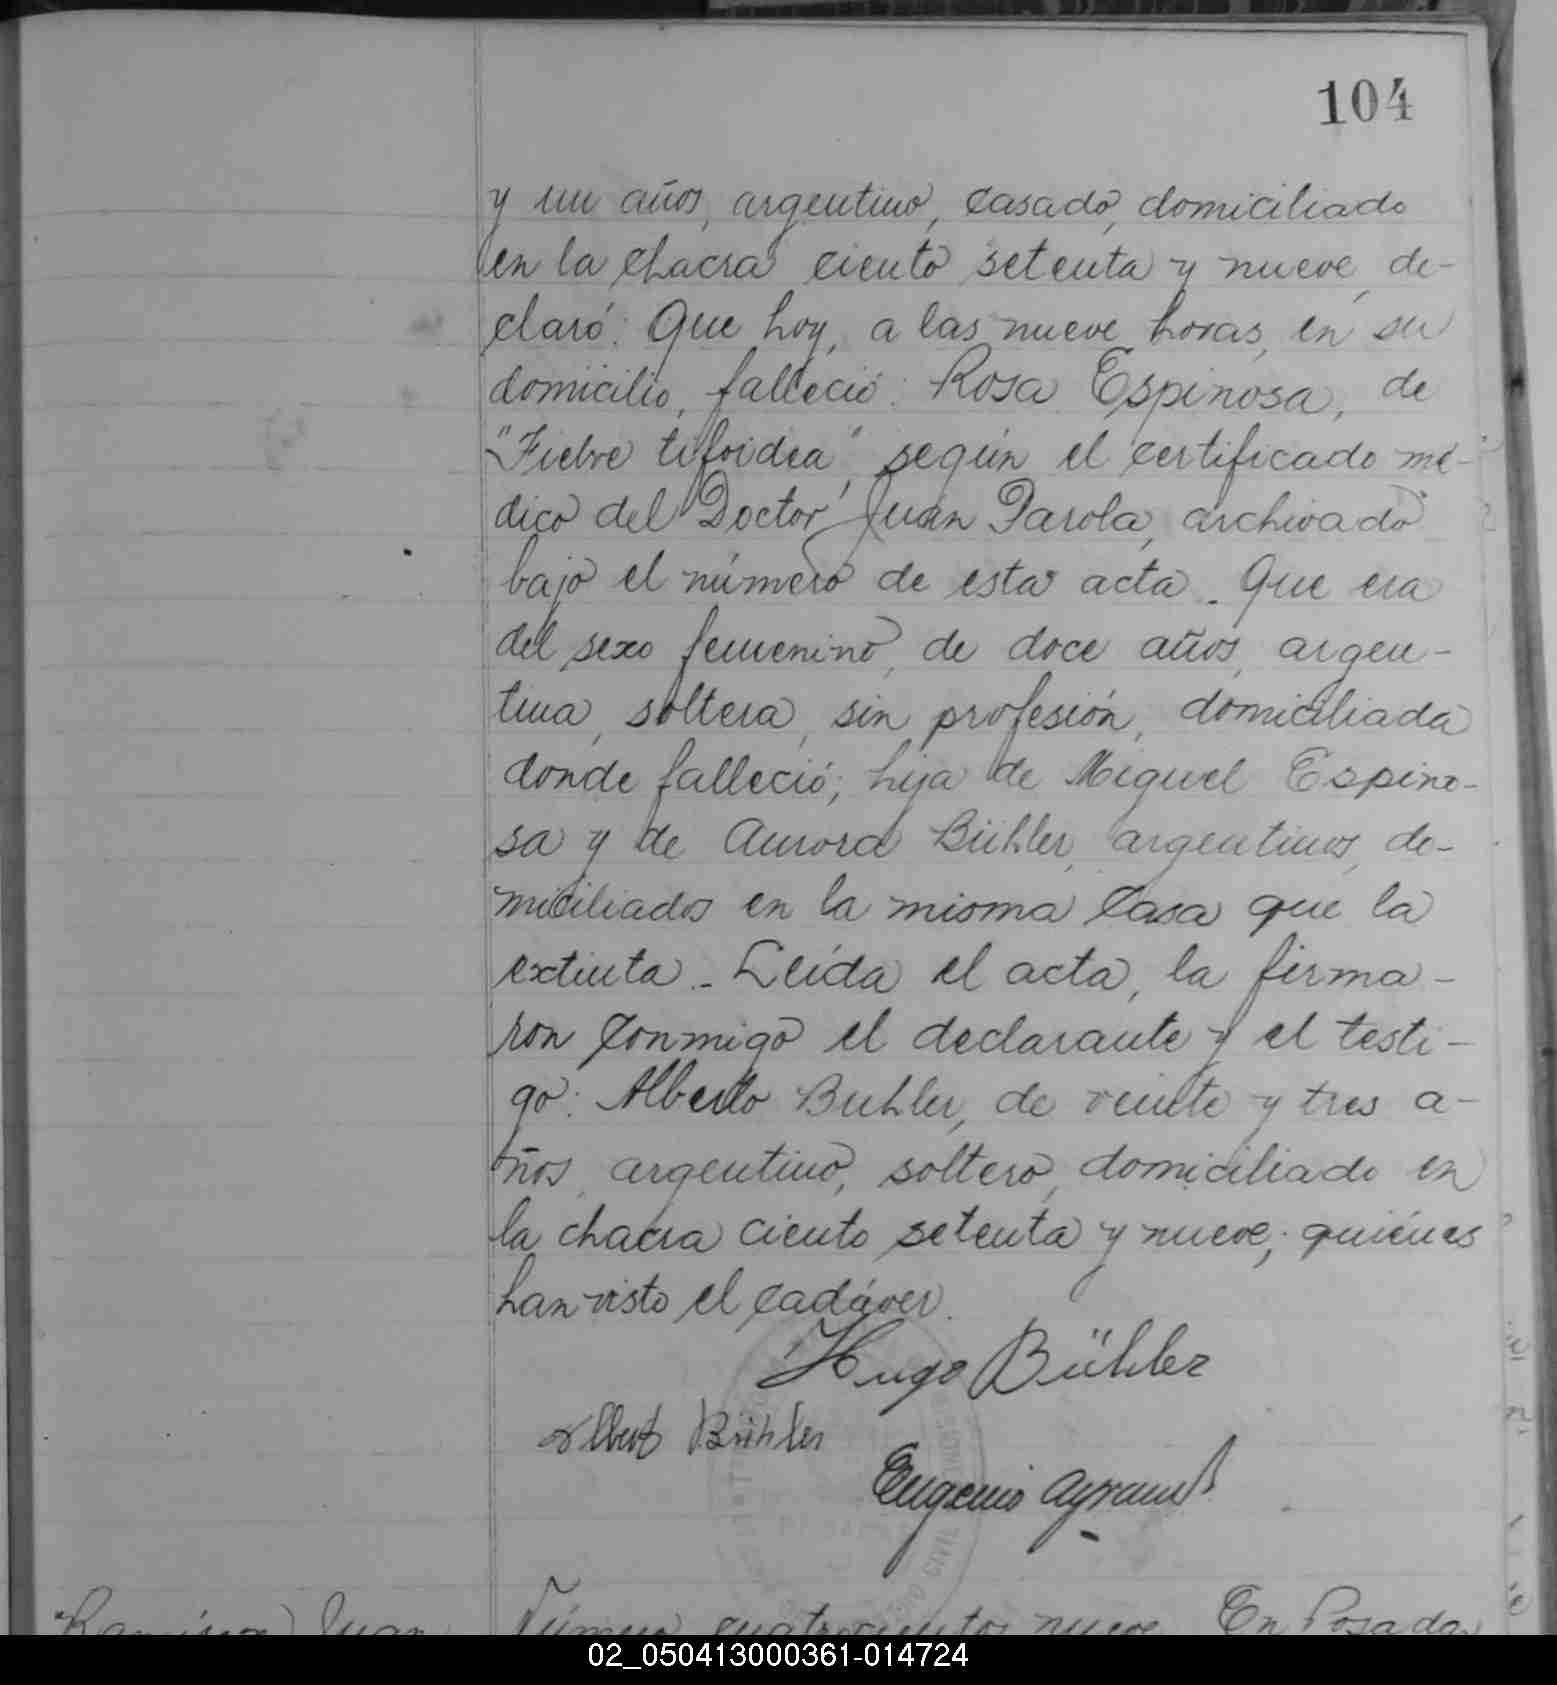 104
y un años, argentino, casado, domiciliado
en la chacra ciento setenta y nueve, de-
claró: Que hoy, a las nueve horas, en su
domicilio, falleció: Rosa Espinosa, de
"Fiebre tifoidea", según el certificado mé-
dico del Doctor Juan Parola, archivado
bajo el número de esta acta. Que era
del sexo femenino, de doce años, argen-
tina, soltera, sin profesión, domiciliada
donde falleció; hija de Miguel Espino-
sa y de Aurora Bühler, argentinos, do-
miciliados en la misma casa que la
extinta. Leída el acta, la firma-
ron conmigo el declarante y el testi-
go: Alberto Buhler, de veinte y tres a-
ños, argentino, soltero, domiciliado en
la chacra ciento setenta y nueve; quiénes
han visto el cadáver.
Hugo Bühler
Albert Bühler
Eugenio
CIVIL
Ramírez Juan Número cuatrocientos nueve. En Posadas
02_050413000361-014724